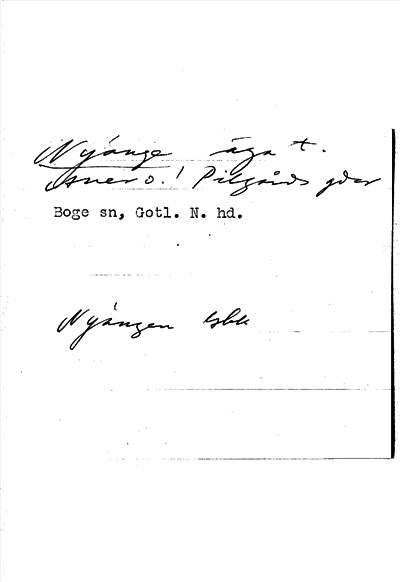 Nyänge äga t.
Isner o. Pilgårds gdar
Boge sn, Gotl. N. hd.
Nyängen